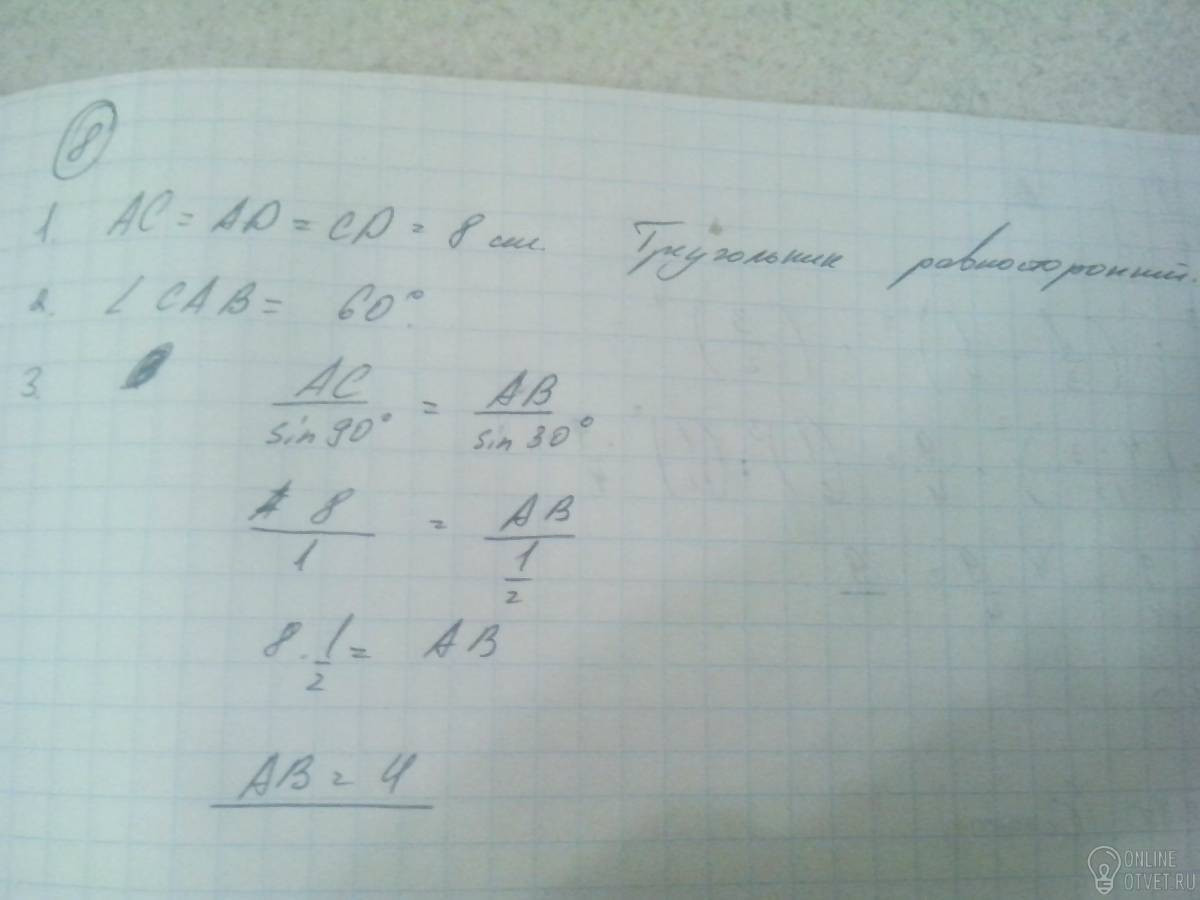 8
1. AC = AD = CD = 8 см. Треугольник равносторонний.
2. ∠CAB = 60°.
3.
AC/sin 90° = AB/sin 30°
8/1 = AB/(1/2)
8 · 1/2 = AB
AB = 4
ONLINE
OTVET.RU